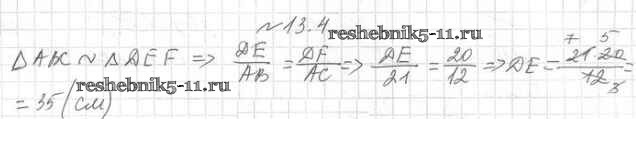 № 13.4
reshebnik5-11.ru
△ABC ~ △DEF => DE/AB = DF/AC => DE/21 = 20/12 => DE = 21·20/12 =
7 5 3
reshebnik5-11.ru
= 35 (см)